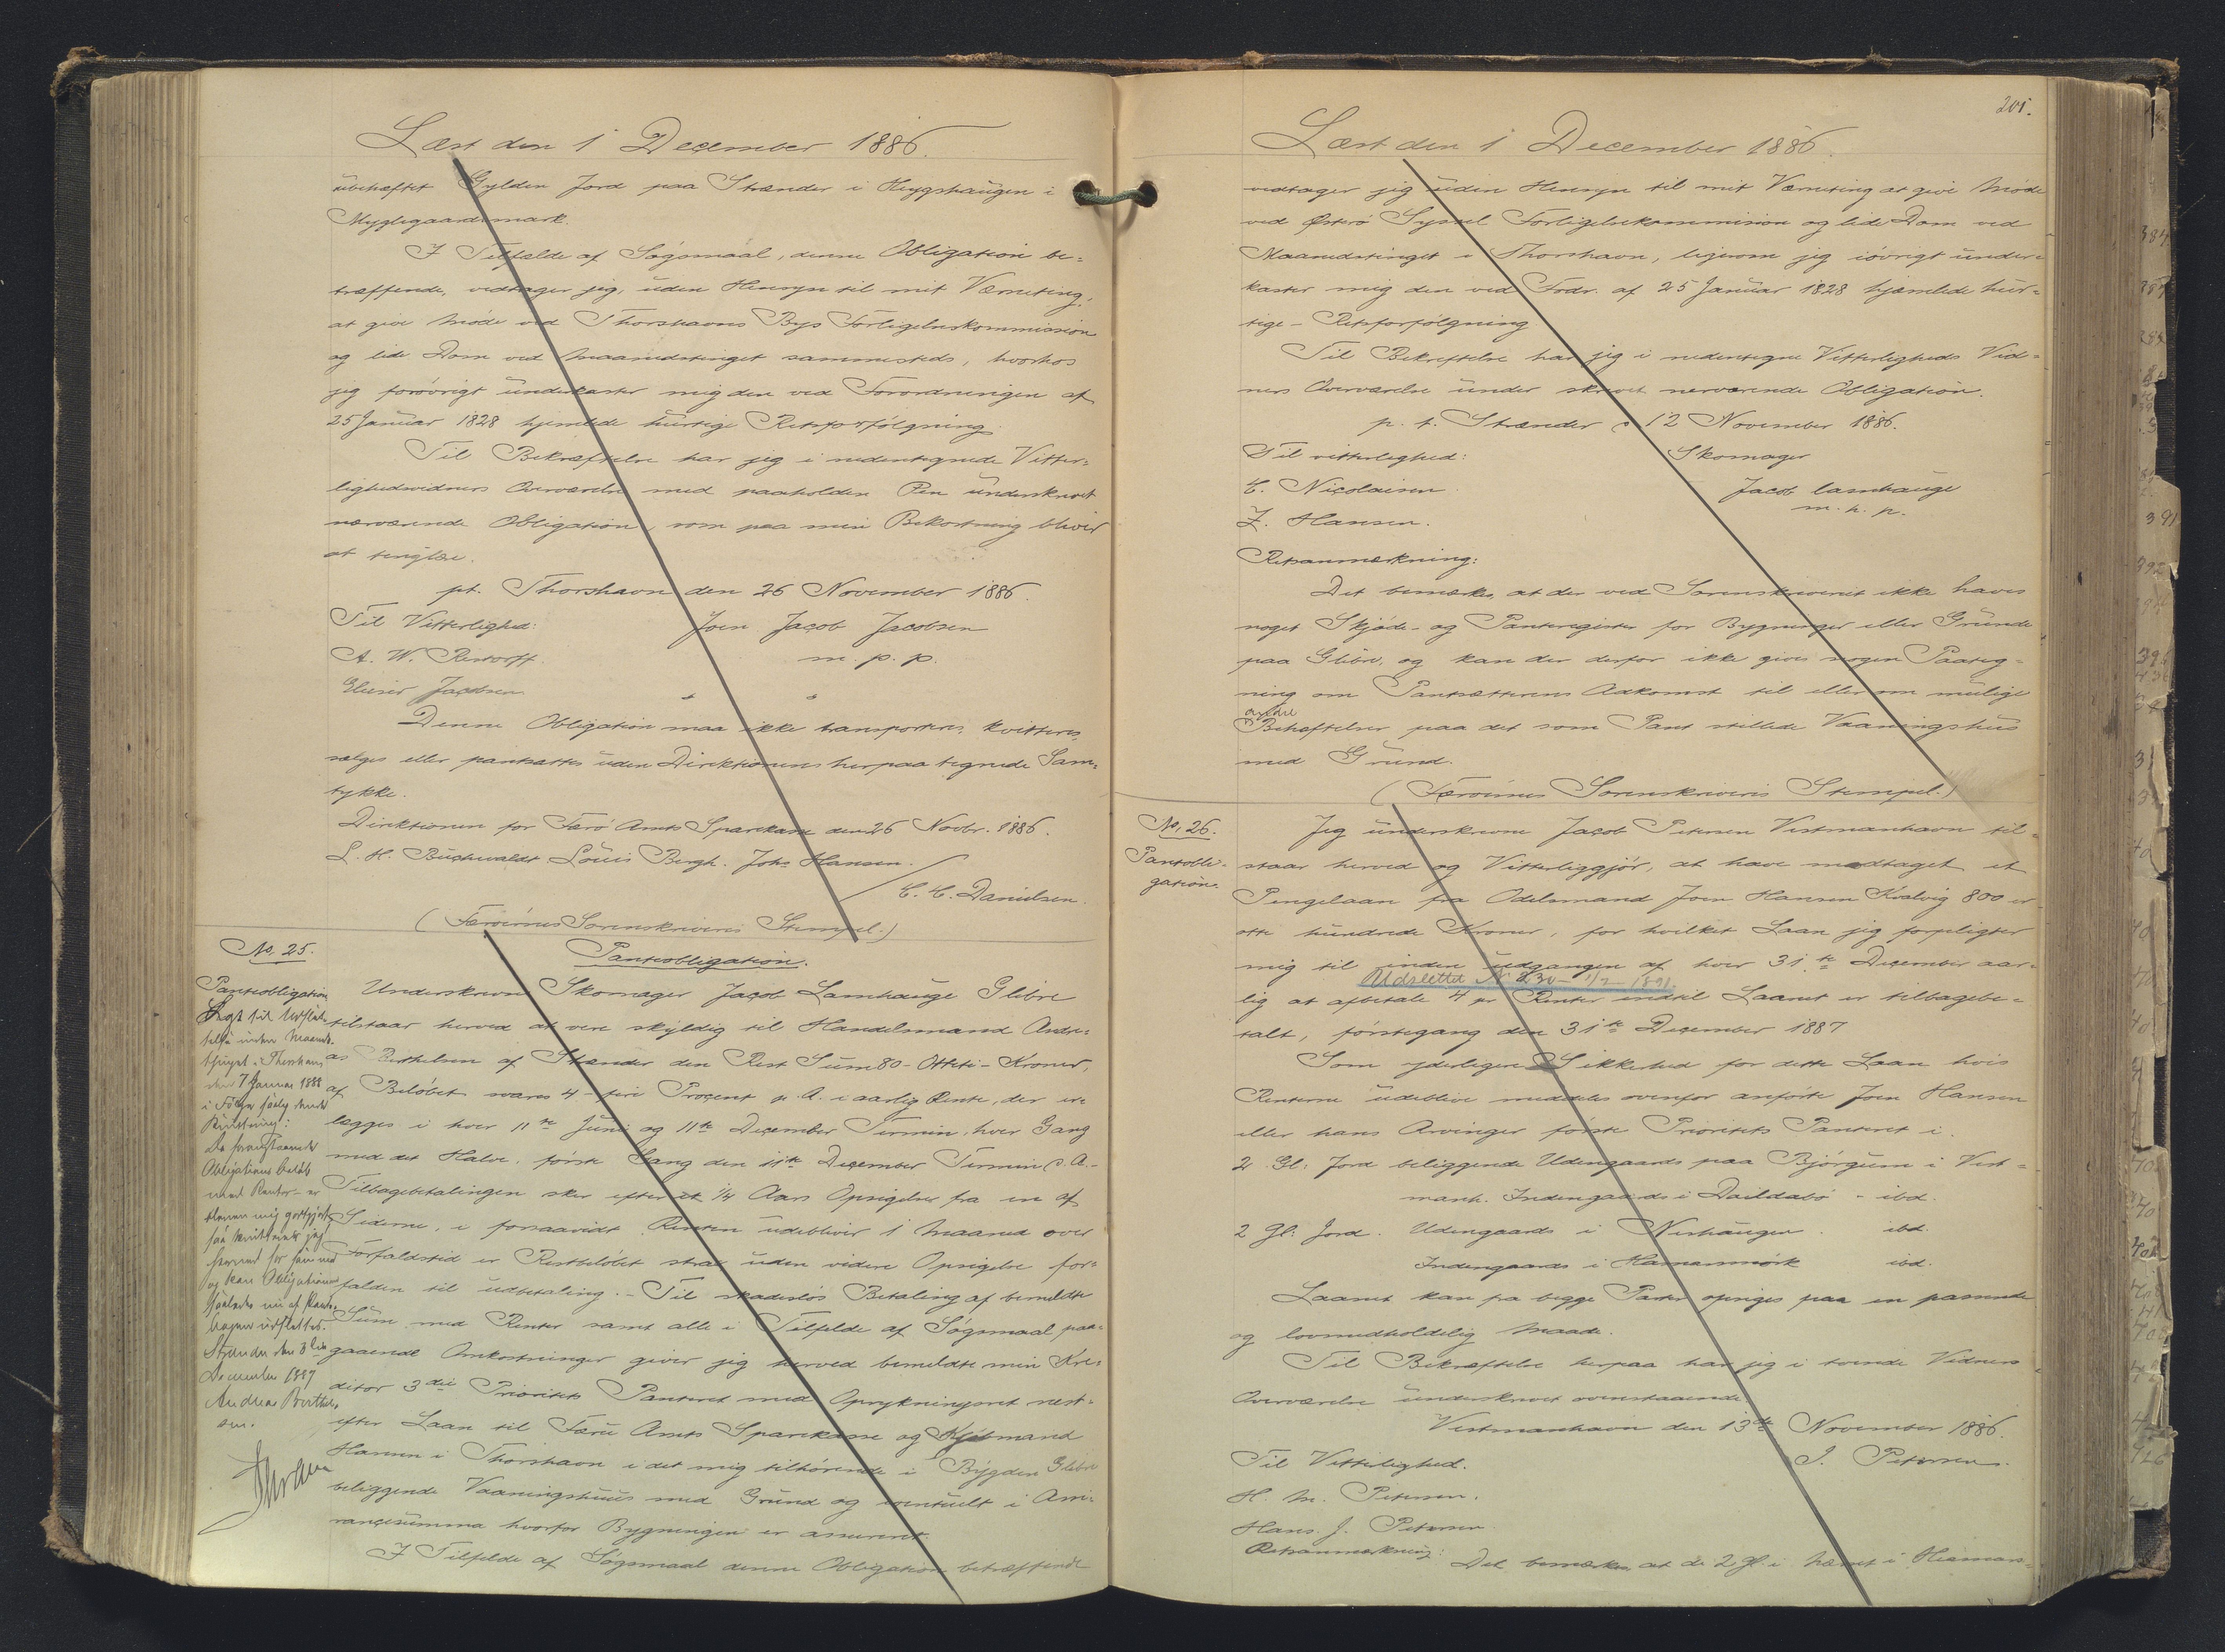 Læst den 1 December 1886.
ubehæftet Gylden Jord paa Strænder i Heygshaugen i
Myglegaardsmark.
I Tilfælde af Søgsmaal, denne Obligation be=
træffende, vedtager jeg, uden Hensyn til mit Værneting,
at give Møde ved Thorshavns Bys Forligelseskommission
og lide Dom ved Maanedstinget sammesteds, hvorhos
jeg forøvrigt underkaster mig den ved Forordningen af
25 Januar 1828 hjemlede hurtige Retsforfølgning.
Til Bekræftelse har jeg i nedentegnede Vitter=
lighedsvidners Overværelse med paaholden Pen underskrevet
nærværende Obligation, som paa min Bekostning bliver
at tinglæse.
pt. Thorshavn den 26 November 1886.
Til Vitterlighed: Joen Jacob Jacobsen
A. W. Restorff. m. p. p.
Elieser Jacobsen
Denne Obligation maa ikke transporteres, kvitteres,
sælges eller pantsættes uden Direktionens herpaa tegnede Sam=
tykke.
Direktionen for Færø Amts Sparekasse den 26 Novbr. 1886.
L. H. Buchwaldt. Louis Bergh. Johs Hansen.
C. C. Danielsen.
(Færøernes Sorenskriveris Stempel.)
No. 25.
Pantobligation.
Pantobligation
Underskrevne Skomager Jacob Lamhauge Glibre
tilstaar herved at være skyldig til Handelsmand Andre=
as Berthelsen af Strænder den Rest Sum 80 - Otteti - Kroner,
af Beløbet svares 4 - fire Procent p. A. i aarlig Rente, der er=
lægges i hver 11te Juni og 11te December Termin, hver Gang
med det Halve, første Gang den 11te December Termin d. A. -
Tilbagebetalingen sker efter et 1/4 Aars Opsigelse fra en af
Siderne, i forsaavidt Renten udebliver 1 Maaned over
Forfaldstid er Restbeløbet strax uden videre Opsigelse for=
falden til udbetaling. - Til skadesløs Betaling af bemeldte
Sum med Renter samt alle i Tilfælde af Søgsmaal paa=
gaaende Omkostninger giver jeg herved bemeldte min Kre=
ditor 3die Prioritets Panteret med Oprykningsret næst=
efter Laan til Færø Amts Sparekasse og Kjøbmand
Hansen i Thorshavn i det mig tilhørende i Bygden Glibre
beliggende Vaaningshuus med Grund og eventuelt i Assu=
rancesumma hvorfor Bygningen er assureret.
I Tilfælde af Søgsmaal denne Obligation betræffende
Lagt til Udslet=
telse inden Maaneds=
thinget i Thorshavn
den 7 Januar 1888
i Følge saalydende
Kvittering:
Da foranstaaende
Obligations beløb
med Renter er
bleven mig godtgjort,
saa kvitterer jeg
herved for samme
og kan Obligationen
saaledes nu af Pante=
bogen udslettes.
Strænder den 3die
December 1887
Andreas Berthel=
sen.
201.
Læst den 1 December 1886.
vedtager jeg uden Hensyn til mit Værneting at give Møde
ved Østerø Syssel Forligelseskommission og lide Dom ved
Maanedstinget i Thorshavn, ligesom jeg iøvrigt under=
kaster mig den ved Fodr. af 25 Januar 1828 hjemlede hur=
tige - Retsforfølgning
Til Bekræftelse har jeg i nedentegne Vitterligheds Vid=
ners Overværelse under skrevet nærværende Obligation.
p. t. Strænder d 12 November 1886.
Til vitterlighed: Skomager
C. Nicolaisen Jacob lamhauge
Z. Hansen. m. p. p.
Retsanmærkning:
Det bemærkes, at der ved Sorenskriveriet ikke haves
noget Skjøde- og Panteregister for Bygninger eller Grunde
paa Glibre, og kan der derfor ikke gives nogen Paateg=
ning om Pantsætterens Adkomst til eller om mulige
andre
Behæftelser paa det som Pant stillede Vaaningshus
med Grund.
(Færøernes Sorenskriveris Stempel.)
No. 26.
Pantobli=
gation.
Jeg underskrevne Jacob Petersen Vestmanhavn til=
staar herved og Vitterliggjør, at have modtaget et
Pengelaan fra Odelsmand Joen Hansen Kvalvig 800 er
otte hundrede Kroner, for hvilket Laan jeg forpligter
mig til inden udgangen af hver 31te December aar=
Udslettet No 230 - 1/2 1891.
lig at afbetale 4 pr Renter indtil Laanet er tilbagebe=
talt, førstegang den 31te December 1887
Som yderligere Sikkerhed for dette Laan hvis
Renterne udeblive meddeles ovenfor anførte Joen Hansen
eller hans Arvinger første Prioritets Panteret i
2 Gl: Jord beliggende Udengaards paa Bjørgum i Vest=
manh. Indengaards i Daildabø - ibd.
2 Gl: Jord. Udengaards i Nishaugen. ibd.
Indengaards i Hamanmørk ibd.
Laanet kan fra begge Parter opsiges paa en passende
og lovmedholdelig Maade.
Til Bekræftelse herpaa har jeg i tvende Vidners
Overværelse underskrevet ovenstaaende.
Vestmanhavn den 13de November 1886.
Til Vitterlighed. J. Petersen.
H. M. Petersen.
Hans. J. Petersen
Retsanmærkning: Det bemærkes, at de 2 Gl. i Næmt i Heimara=